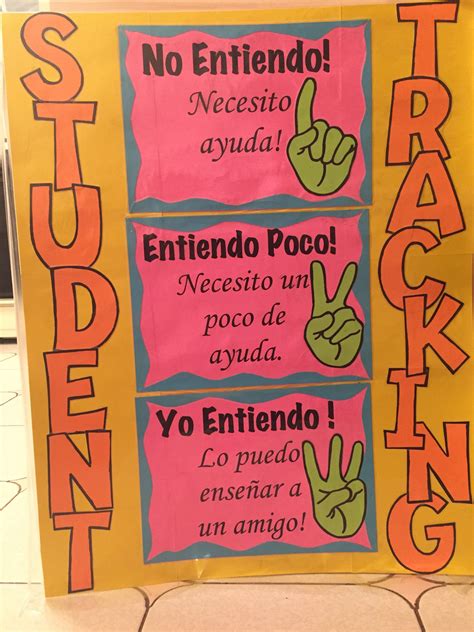 STUDENT
No Entiendo!
Necesito
ayuda!
Entiendo Poco!
Necesito un
poco de
ayuda.
Yo Entiendo !
Lo puedo
enseñar a
un amigo!
TRACKING